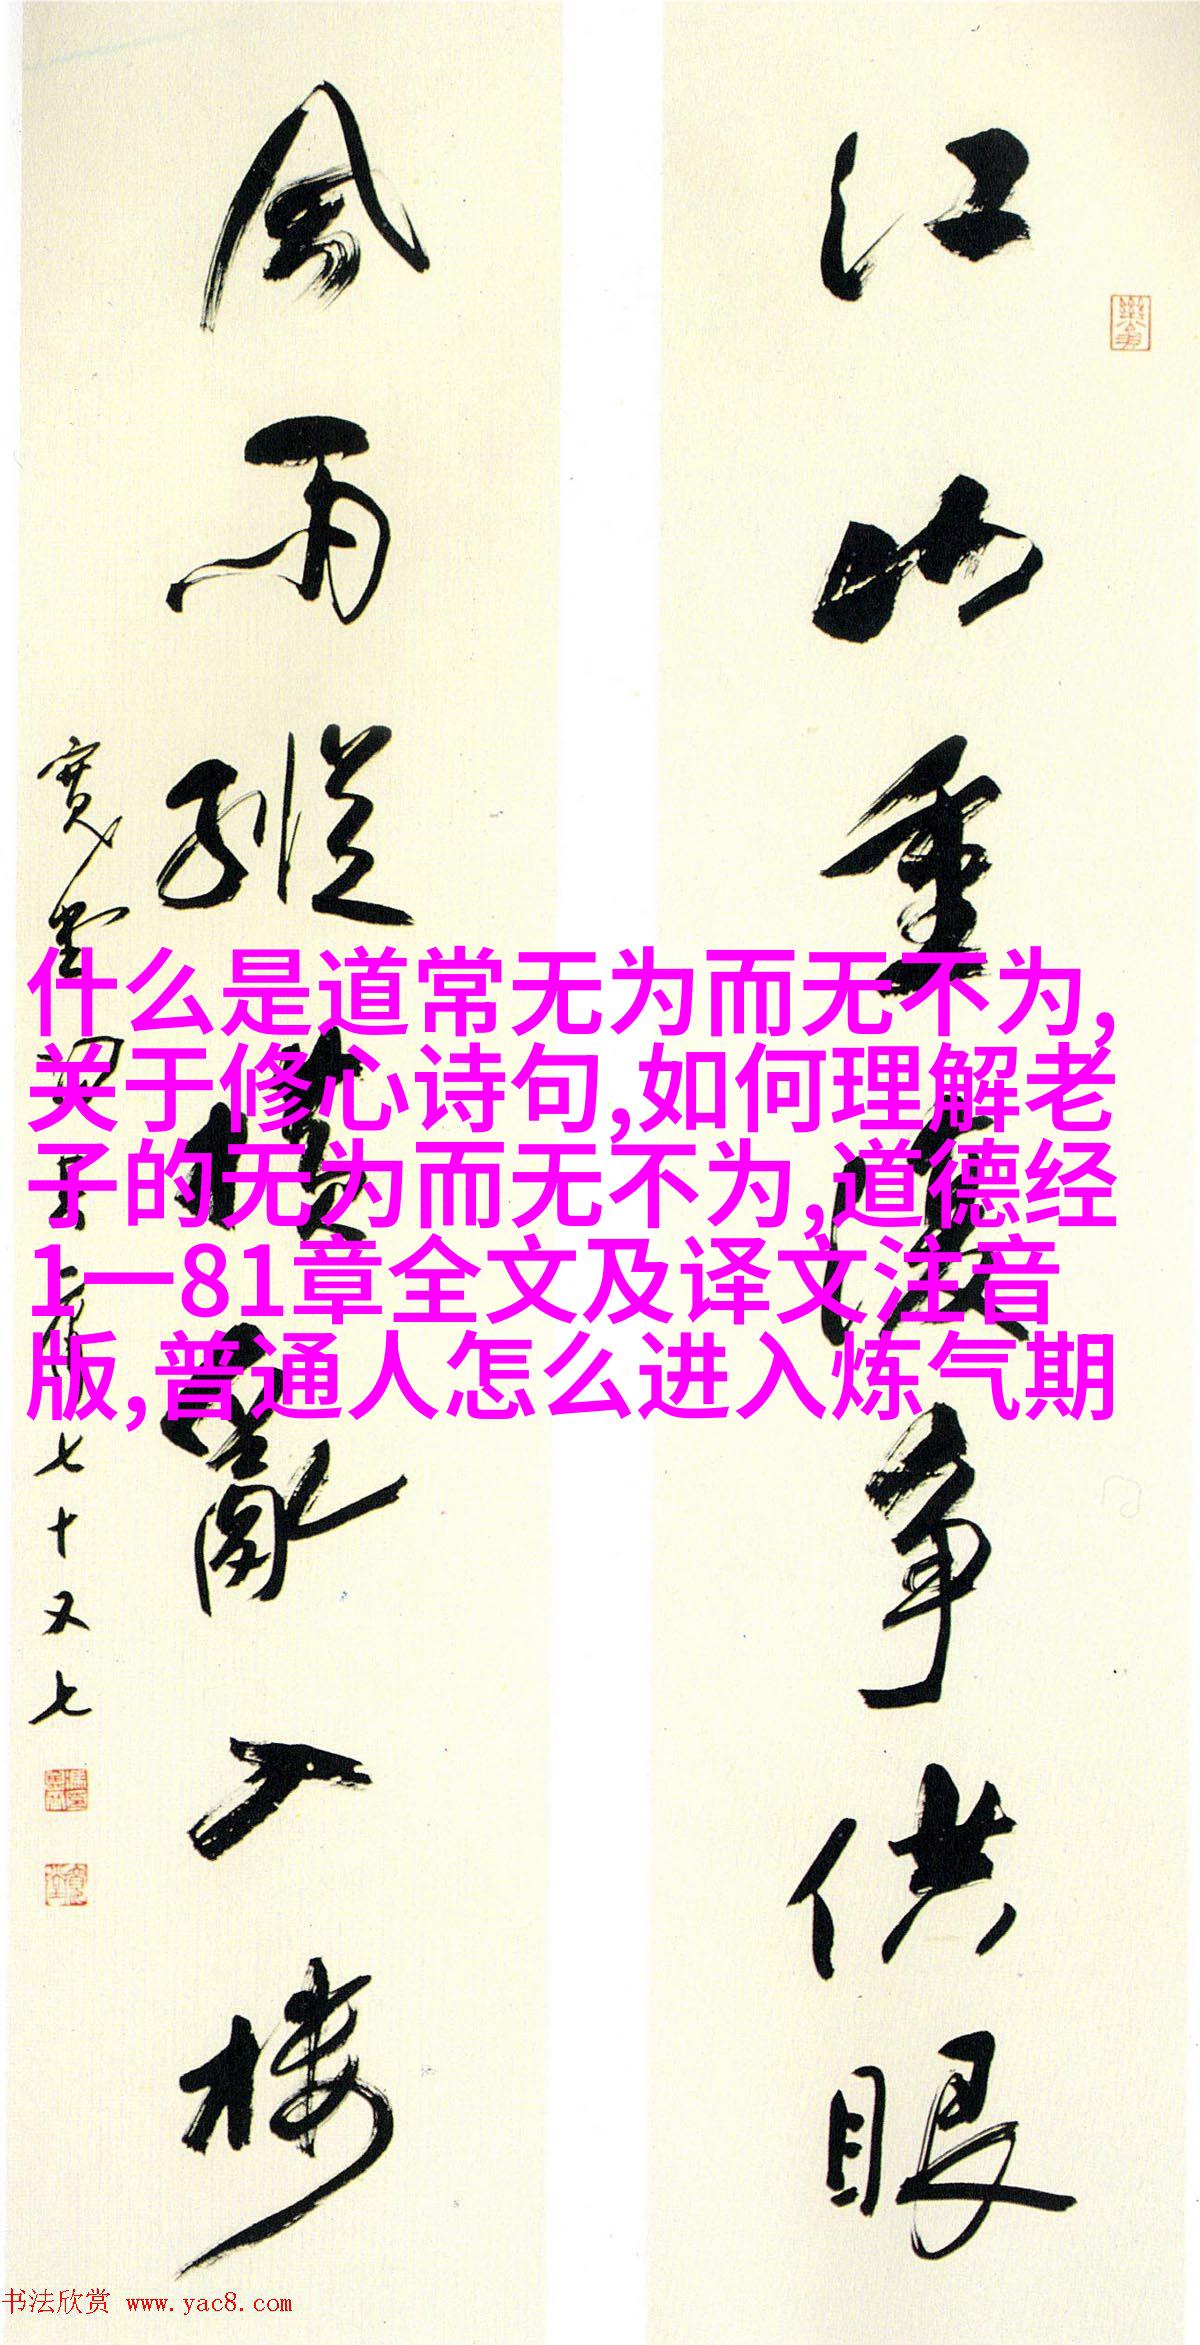 江山重複争供眼
風雨縱橫亂入樓
寬堂馮其庸
七十又七
什么是道常无为而无不为,
关于修心诗句,如何理解老
子的无为而无不为,道德经
1一81章全文及译文注音
版,普通人怎么进入炼气期
书法欣赏 www.yac8.com